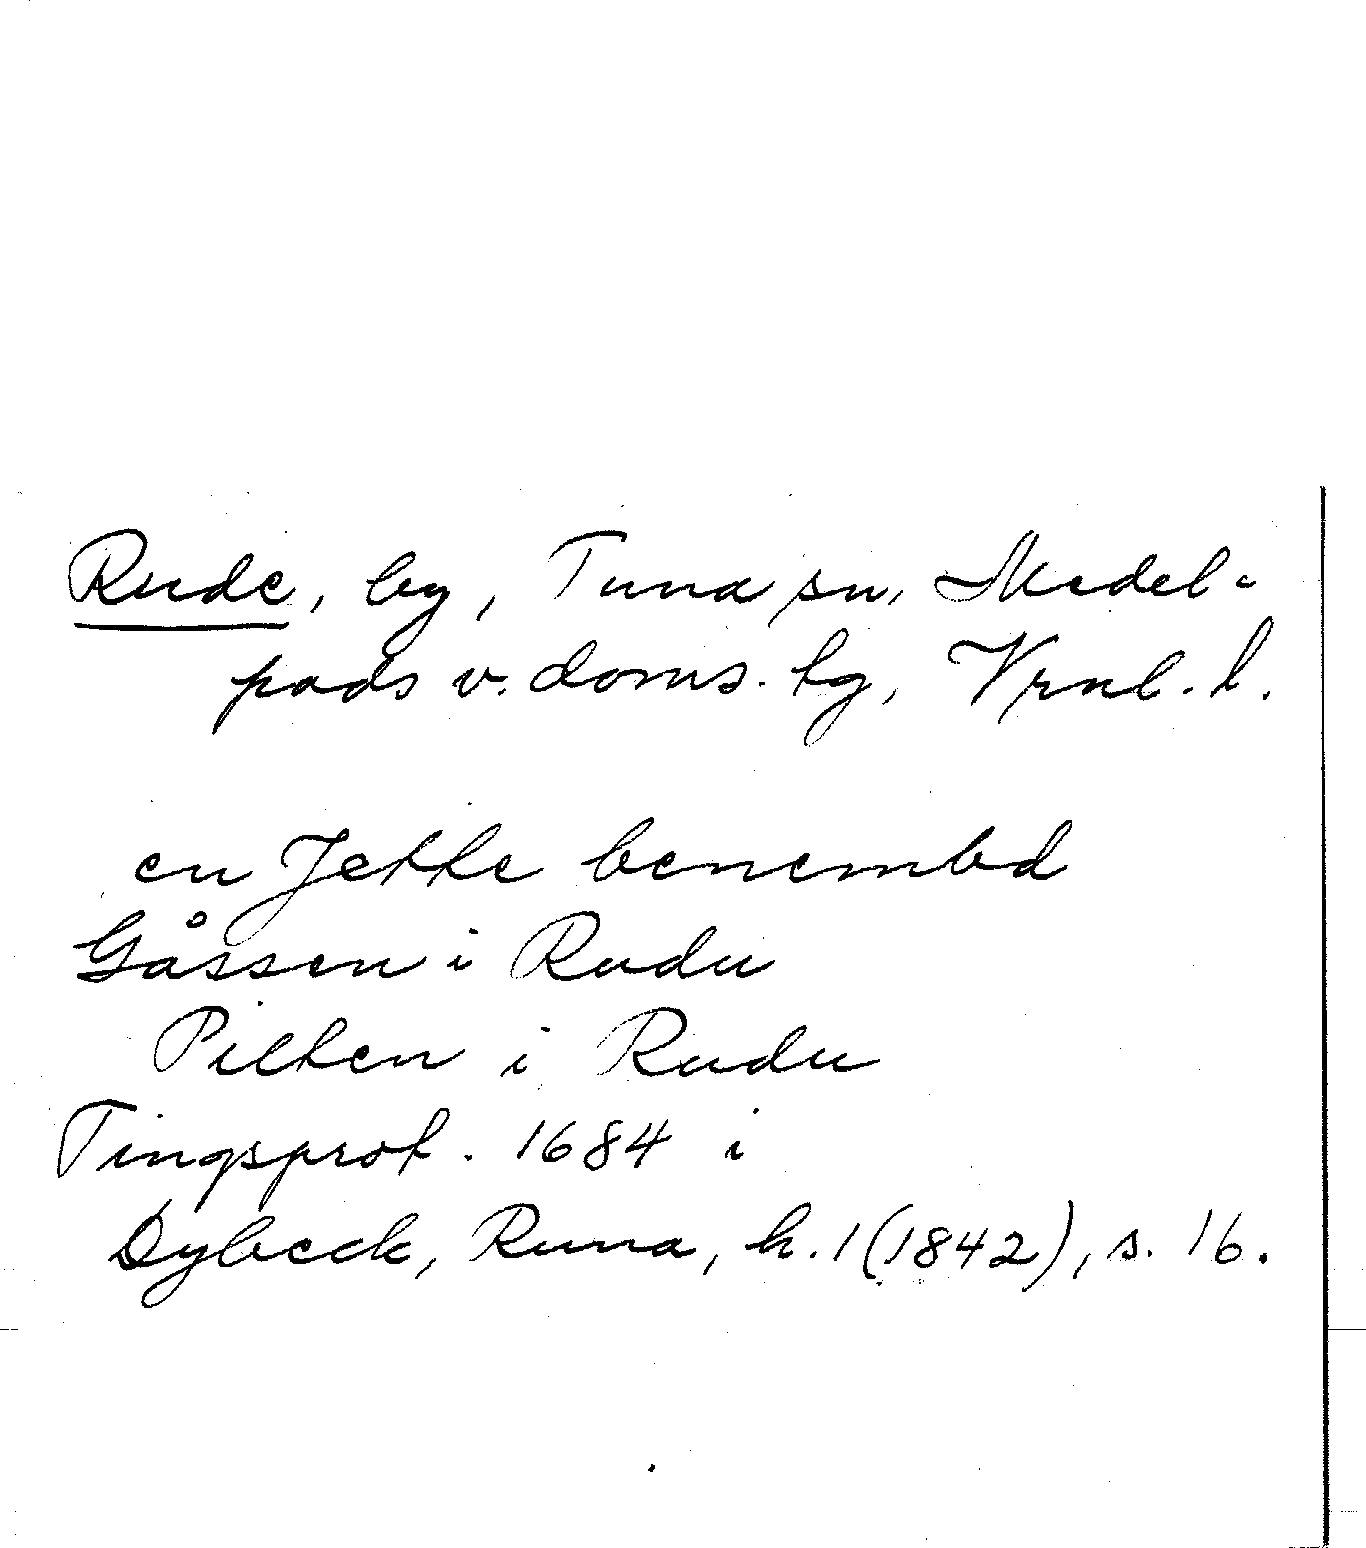 Rude, by, Tuna sn, Medel-
pads v. doms. tg, Vrnl. l.
en Jette benembd
Gåssen i Rudu
Pilten i Rudu
Tingsprot. 1684 i
Dybeck, Runa, h. 1 (1842), s. 16.